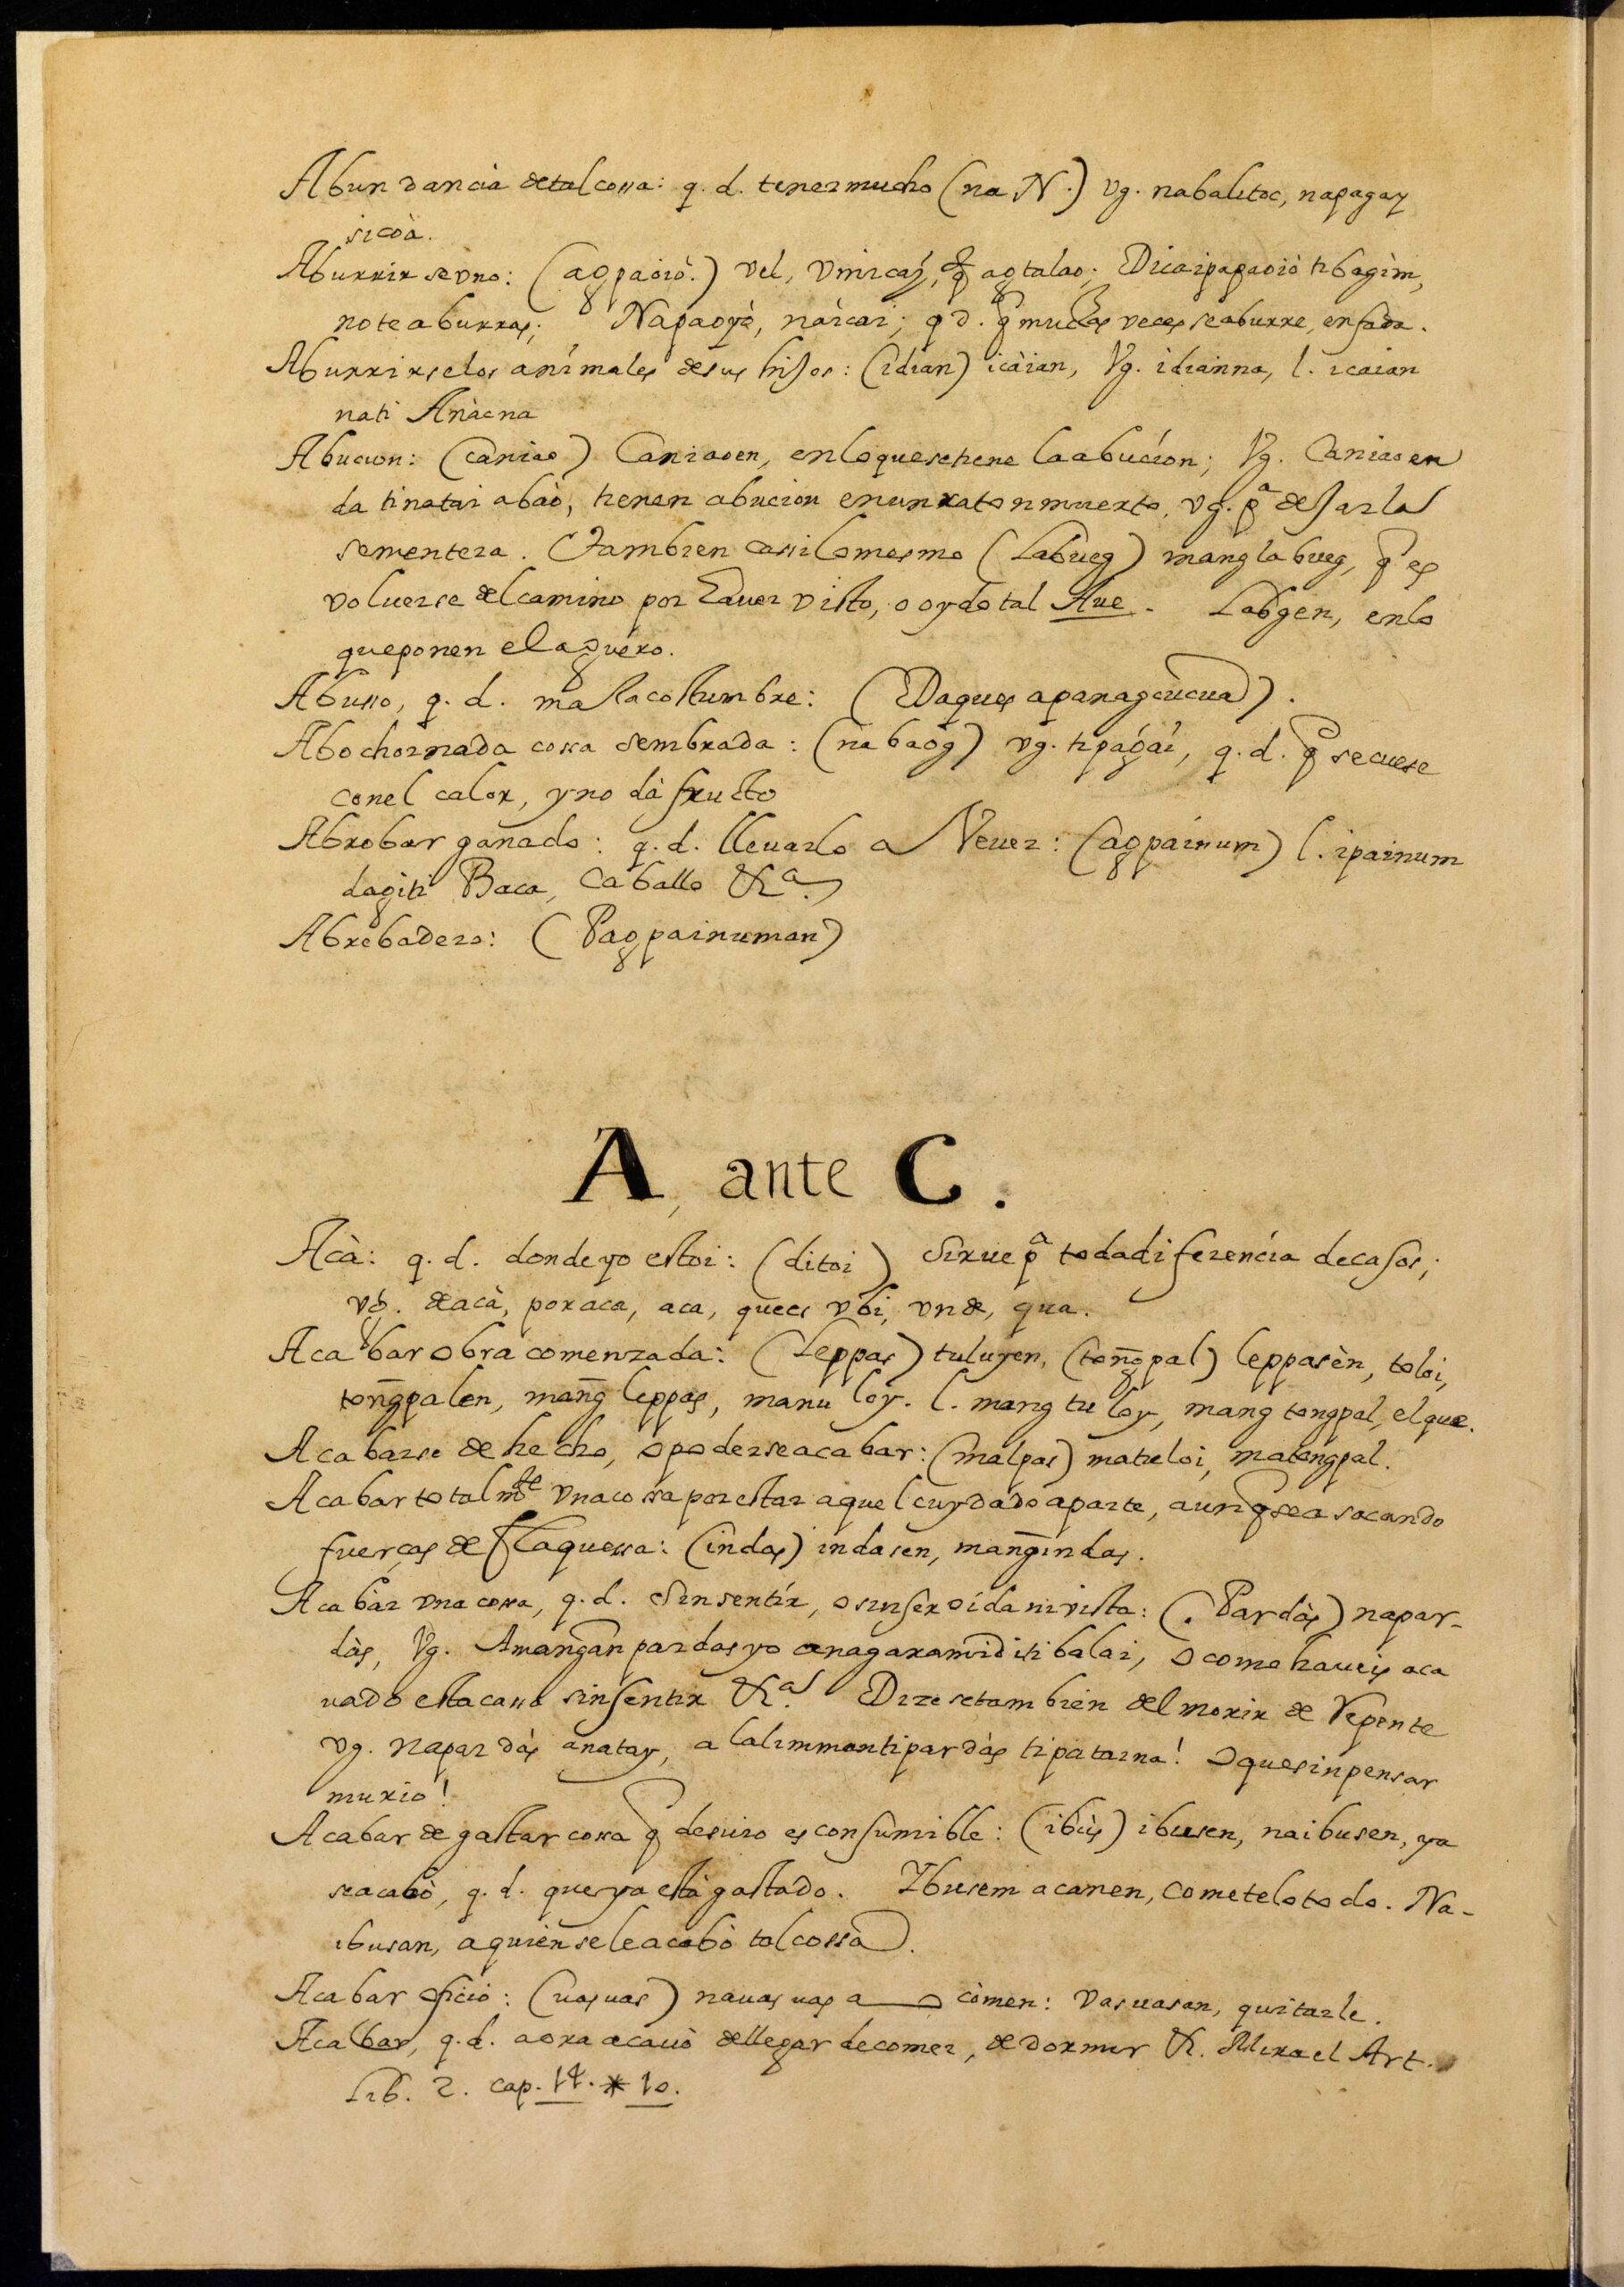 Abundancia de tal cossa: q. d. tener mucho (na N.) vg. nabalitoc, napagay
sicòa.
Aburrirse vno: (agpagiò.) vel, vmircaỳ, q̃ agtalao; Dicaipapagiò ti bagim,
no te aburras; Napaoyò, nàrcai; q d. q̃ muchas veces se aburre, enfada.
Aburrirse los animales de sus hijos: (idian) icàian, Vg. idianna, l. icaian
nati Anàcna
Abucion: (caniao) Caniaoen, en lo que se tiene la abucion; Vg. Caniaoen
da ti natai abaò, tienen abucion en un raton muerto, vg. pª dejar la
sementera. Tambien cassi lo mesmo (Labueg) mang labueg, q̃ es
voluerse del camino por hauer visto, o oydo tal Aue. Labgen, en lo
que ponen el aguero.
Abusso, q. d. mala costumbre: (Daques a panagcucua).
Abochornada cossa sembrada: (nabaòg) vg. ti pagài, q. d. q̃ se cuese
con el calor, y no dà fructo
Abrobar ganado: q. d. lleuarlo a Veuer: (agpainum) l. ipainum
dagiti Baca, Caballo &ª.
Abrebadero: (Pagpainuman)
A, ante C.
Acà: q. d. donde yo estoi: (ditoi) Sirue pª toda diferencia de casos;
vg. de acà, por aca, aca, que es vbi, vnde, qua.
Acabar obra comenzada: (Leppas) tuluyen, (tong̃pal) leppasèn, toloi,
tong̃palen, mang̃ leppas, manu loy. l. mang tu loy, mang tongpal, el que.
Acabarse de hecho, o poderse acabar: (malpas) matuloi, matongpal.
Acabar totalmte vna cossa por estar aquel cuydado aparte, aunq̃ sea sacando
fuerças de flaquessa: (indas) indasen, mang̃indas.
Acabar vna cossa, q. d. sin sentir, o sin ser oida ni vista: (Pardàs) napar-
dàs, Vg. Amangan pardas yo anagaramid iti balai, o como haueis aca
uado esta cassa sin sentir &ª. Dizese tambien del morir de Repente
vg. napardàs a natay, alalimmantipardàs ti patai na! o que sin pensar
murio!
Acabar de gastar cossa q̃ de suio es consumible: (ibùs) ibusen, naibusen, ya
se acabò, q. d. que ya està gastado. Ibusem a canen, cometelo todo. Na-
ibusan, a quien se le acabò tal cossa.
Acabar oficio: (uasuas) nauasuas a còmen: Vasuasan, quitarle.
Acabar, q. d. aora acauò de llegar de comer, de dormir &. Mira el Art.
Lib. 2. cap. 14. * 10.